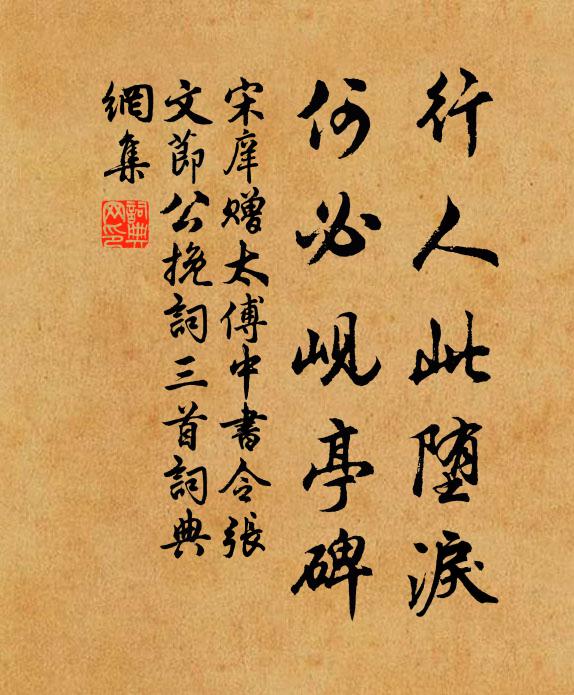 行人此堕淚
何必峴亭碑
宋庠贈太傅中書令張
文節公挽詞三首詞典
網集
詞典
网印